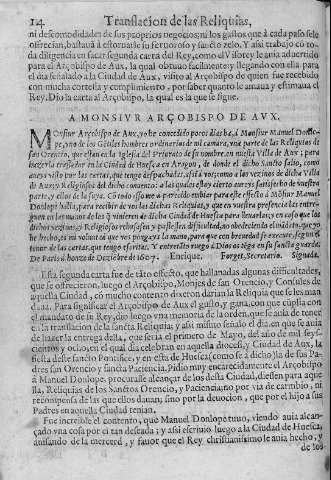 14. Translacion de las Reliquias,
ni descomodidades de sus proprios negocios; ni los gastos que à cada paso sele
ofrecian, bastauà à estoruar le su feruoroso y sancto zelo. Y asi trabajó co toda
diligencia en sacar segunda carta del Rey, como el Visorey le auia aduertido
para el Arçobispo de Aux, la qual obtuuo facilmente; y llegando con ella para
el dia señalado a la Ciudad de Aux, visito al Arçobispo de quien fue recebido
con mucha cortesia y cumplimiento, por saber quanto le amaua y estimaua el
Rey. Dio la carta al Arçobispo, la qual es la que se sigue.
A MONSIVR ARÇOBISPO DE AVX.
Monsiur Arçobispo de Aux, yo he concedido pocos dias ha, à Monsiur Manuel Donlope,
vno de los Gētiles hombres ordinarios de mi camara, vna parte de las Reliquias de
san Orencio, que estan en la iglesia del Priorato de su nombre, en nuestra Villa de Aux; para
hazerla trasferir en la Ciudad de Huesca en Aragon, de donde el dicho Sancto salio, como
aueys visto por las cartas, que tengo despachadas, assi à vos; como a los vezinos de dicha Villa
de Aux, y Religiosos del dicho conuento: a las quales estoy cierto aueys satisfecho de vuestra
parte, y ellos de la suya.
en las manos de los que vinieren de dicha Ciudad de Huesca para lleuarlas; y en caso que los
dichos vezinos, y Religiosos rehusassen y pusiessen dificultad, no obedeciendo
tenor de las cartas, que tengo escritas. Y entretāto ruego à Dios os tēga en su sancta guarda.
De Paris à honze de Deziembre de 1607. Enrique. Forget, Secretario. Signada.
Esta segunda carta fue de tāto effecto, que hallanadas algunas difficultades,
que se ofrecieron, luego el Arçobispo, Monjes de san Orencio, y Consules de
aquella Ciudad, có mucho contento dixeron darian la Reliquia que se les mandaua.
Para significar el Arçobispo de Aux el gusto, y gana, con que cūplia con
el mandato de su Rey, dio luego vna memoria de la orden, que se auia de tener
en la translacion de la sancta Reliquia: y asi mismo señalo el dia, en que se auia
de hazer la entrega della, que seria el primero de Mayo, del año de mil seyscientos
y ocho; en el qual dia celebran en aquella diocesi, y Ciudad de Aux, la
fiesta deste sancto Pontifice, y en esta de Huesca (como se à dicho) la de sus Padres
san Orencio y sancta Paciencia. Pidio muy encarecidamente el Arçobispo
à Manuel Donlope, procurase alcançar de los desta Ciudad, diessen para aquella,
Reliquias de los Sanctos Orencio, y Paciencia; no por via de cambio, ni
recompensa de las que ellos dauan; sino por la deuocion, que por el hijo a sus
Padres en aquella Ciudad tenian.
Fue increible el contento, que Manuel Donlope tuuo, viendo auia alcançado
vna cosa por el tan deseada; y assi escriuio luego a la Ciudad de Huesca,
auisando de la merced, y fauor que el Rey christianissimo le auia hecho, y
de los